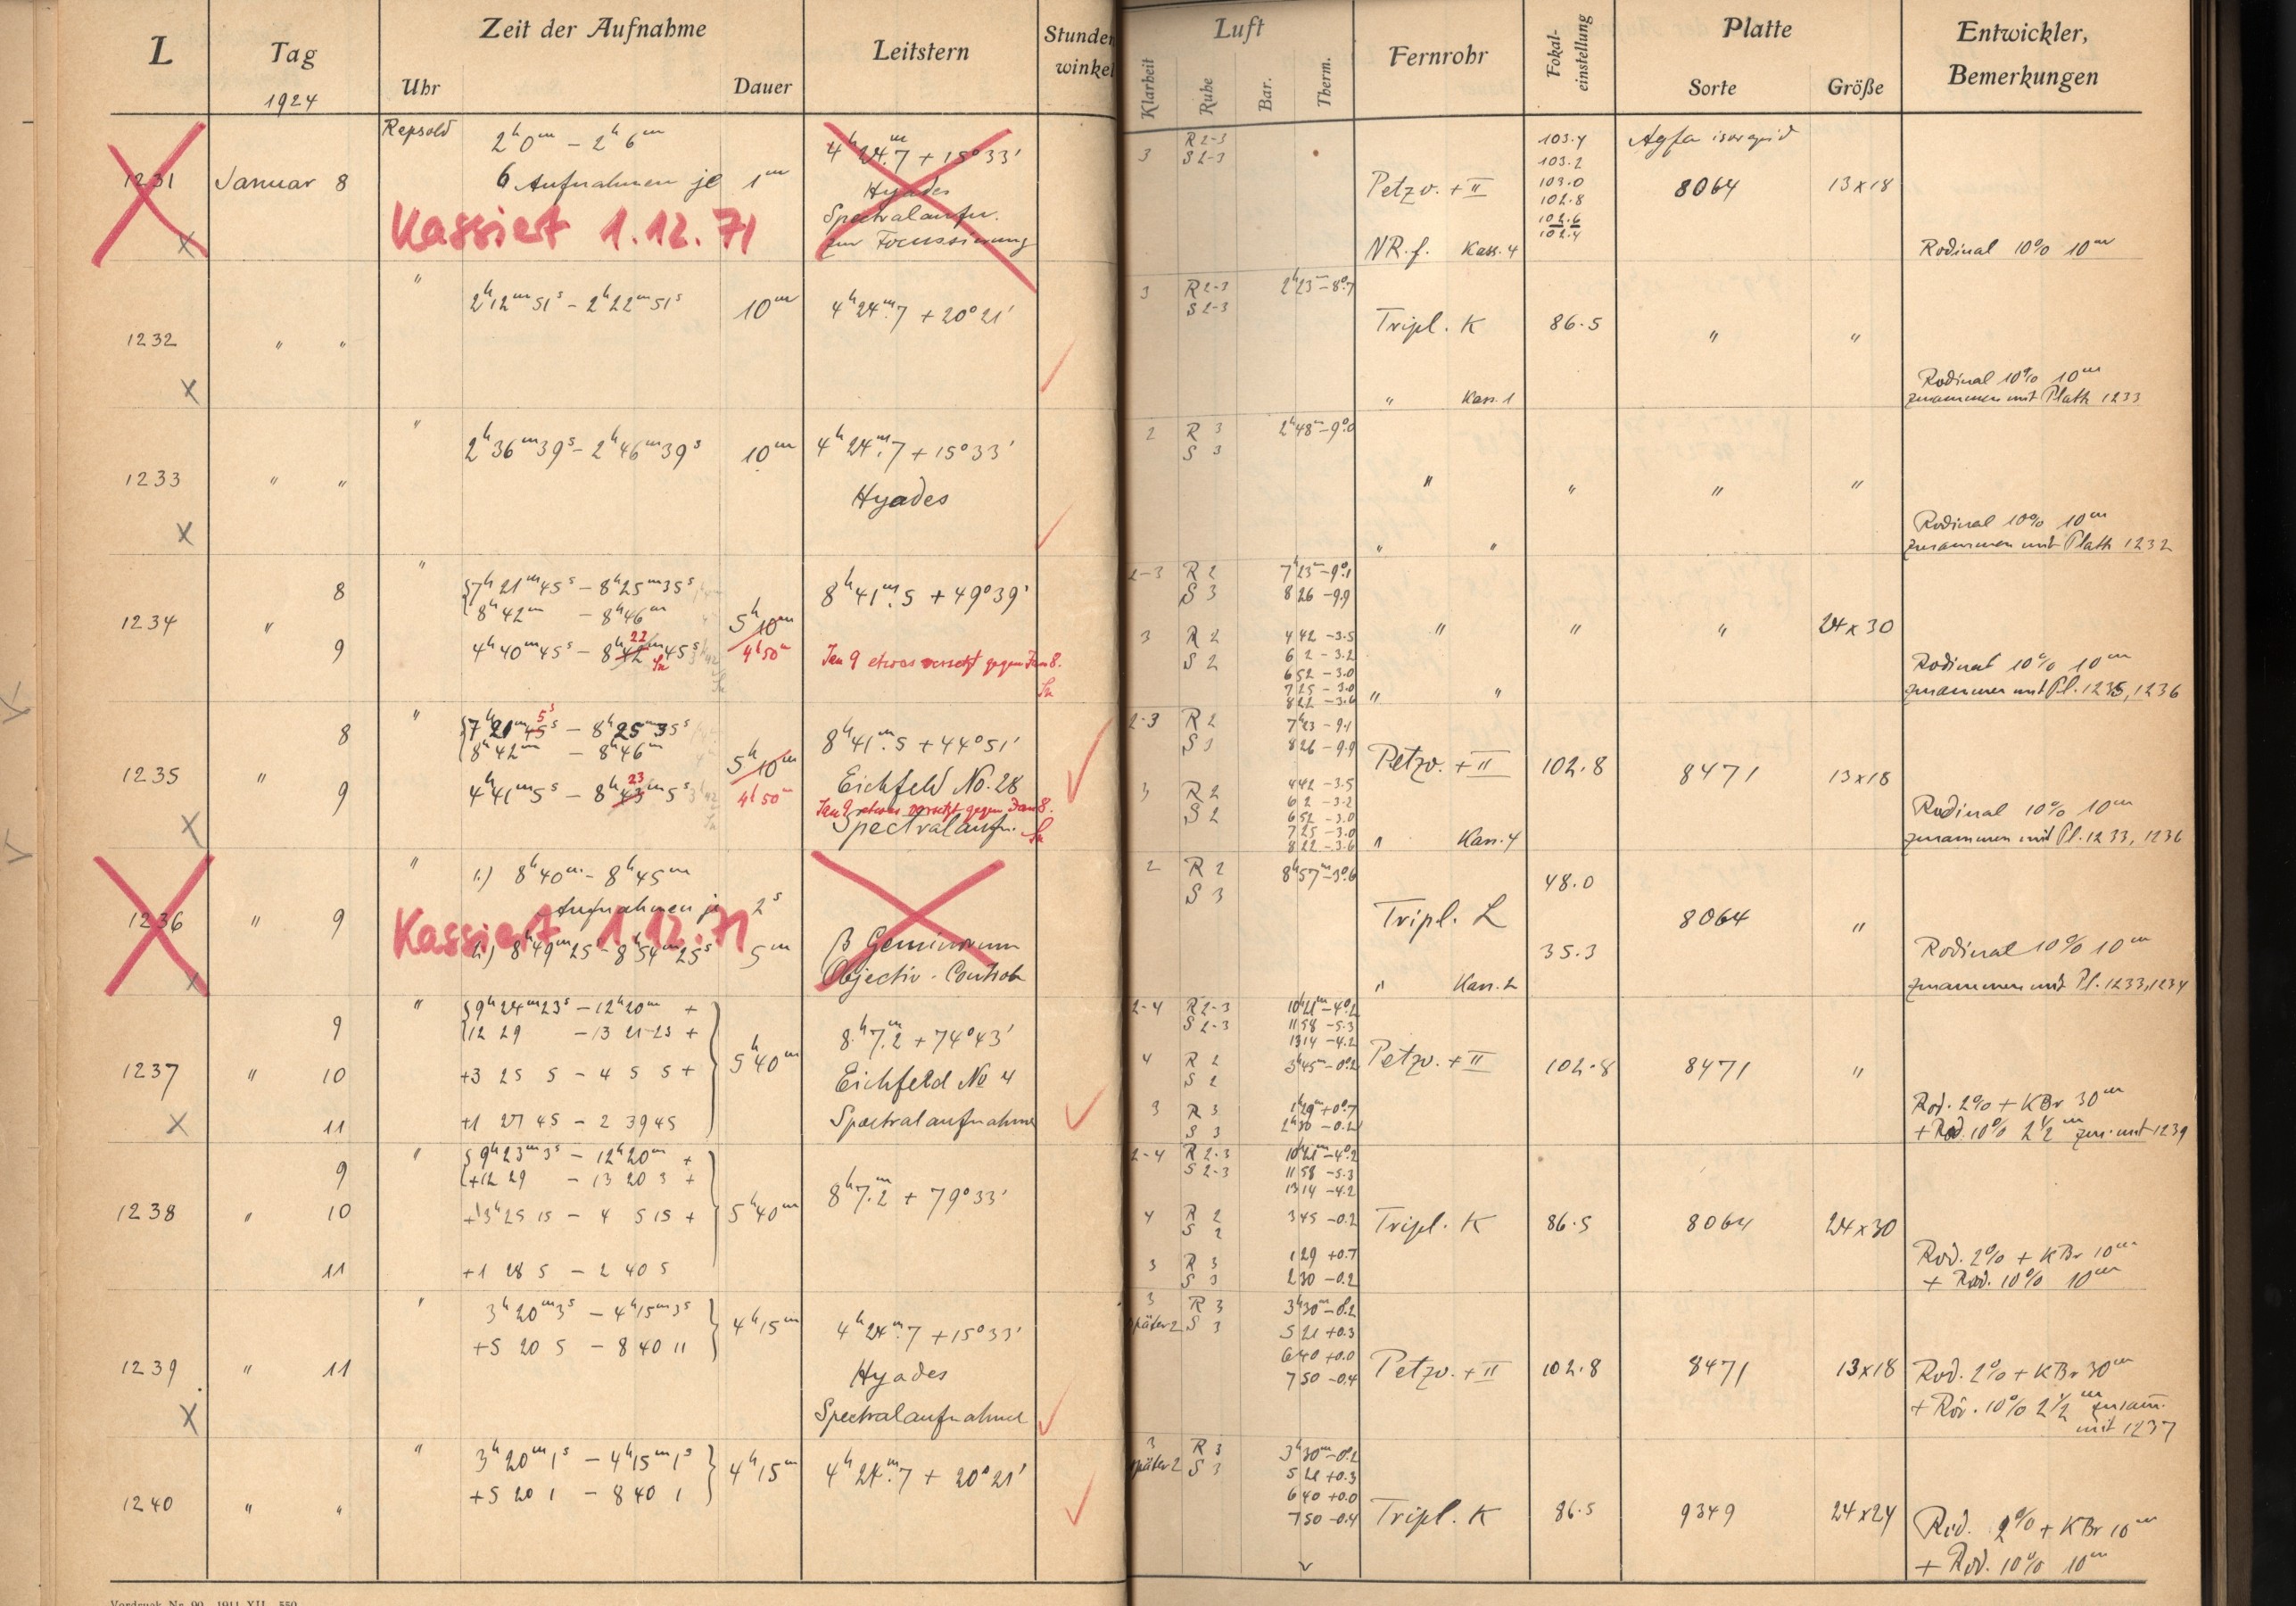 L Tag 1924 Zeit der Aufnahme Uhr Dauer Leitstern Stunden winkel Luft Klarheit Ruhe Bar. Therm. Fernrohr Fokal-einstellung Platte Sorte Größe Entwickler, Bemerkungen
1231 Januar 8 Repsold 2h 0m – 2h 6m
6 Aufnahmen je 1m
Kassiert 1.12.71
4h 24m.7 + 15°33'
Hyades
Spectralaufn.
zur Focussierung
3 R 2-3
S 2-3
Petzv. + II
NR.f. Kass. 4
103.4
103.2
103.0
102.8
102.6
102.4
Agfa isorapid
8064 13x18
Rodinal 10% 10m
x
1232 " " " 2h 12m 51s – 2h 22m 51s 10m 4h 24m.7 + 20°21'
3 R 2-3 2h 23m – 8°.7
S 2-3
Tripl. K 86.5 " "
" Kass. 1
Rodinal 10% 10m
zusammen mit Platte 1233
x
1233 " " " 2h 36m 39s – 2h 46m 39s 10m 4h 24m.7 + 15°33'
Hyades
2 R 3 2h 48m – 9°.0
S 3
" " " "
" "
Rodinal 10% 10m
zusammen mit Platte 1232
x
1234 " 8 " 7h 21m 45s – 8h 25m 35s
8h 42m – 8h 46m
9 4h 40m 45s – 8h 42m 45s
22
5h 10m
4h 50m
8h 41m.5 + 49°39'
Jan 9 etwas versetzt gegen Jan 8.
2-3 R 2 7h 23m – 9°.1
S 3 8 26 – 9.9
3 R 2 4 42 – 3.5
S 2 6 2 – 3.2
6 52 – 3.0
7 25 – 3.0
8 22 – 3.6
" " " 24x30
" "
Rodinal 10% 10m
zusammen mit Pl. 1235, 1236
1235 " 8 " 7h 21m 45s – 8h 25m 35s
5s
8h 42m – 8h 46m
9 4h 41m 5s – 8h 43m 5s
23
5h 10m
4h 50m
8h 41m.5 + 44°51'
Eichfeld No. 28
Jan 9 etwas versetzt gegen Jan 8.
Spectralaufn.
2-3 R 2 7h 23 – 9.1
S 3 8 26 – 9.9
3 R 2 4 42 – 3.5
S 2 6 2 – 3.2
6 52 – 3.0
7 25 – 3.0
8 22 – 3.6
Petzv. + II 102.8 8471 13x18
" Kass. 4
Rodinal 10% 10m
zusammen mit Pl. 1233, 1236
x
1236 " 9 " 1.) 8h 40m – 8h 45m
Aufnahmen je 2s
Kassiert 1.12.71
2.) 8h 49m 25s – 8h 54m 25s 5m
β Geminorum
Objectiv-Controle
2 R 2 8h 57m – 3°.6
S 3
Tripl. L 48.0
35.3
8064 "
" Kass. 2
Rodinal 10% 10m
zusammen mit Pl. 1233, 1234
x
1237 " 9 " 9h 24m 23s – 12h 20m +
12 29 – 13 21 23 +
10 +3 25 5 – 4 5 5 +
11 +1 27 45 – 2 39 45
5h 40m
8h 7m.2 + 74°43'
Eichfeld No 4
Spectralaufnahme
2-4 R 2-3 10h 21m – 4°.2
S 2-3 11 58 – 5.3
13 14 – 4.2
4 R 2 3h 45m – 0°.2
S 2
3 R 3 1h 29m + 0°.7
S 3 2h 30 – 0.2
Petzv. + II 102.8 8471 "
Rod. 2% + KBr 30m
+ Rod. 10% 2½m zus. mit 1239
x
1238 " 9 " 9h 23m 3s – 12h 20m +
+12 29 – 13 20 3 +
10 +3h 25 15 – 4 5 15 +
11 +1 28 5 – 2 40 5
5h 40m
8h 7m.2 + 79°33'
2-4 R 2-3 10h 21m – 4°.2
S 2-3 11 58 – 5.3
13 14 – 4.2
4 R 2 3 45 – 0.2
S 2
3 R 3 1 29 + 0.7
S 3 2 30 – 0.2
Tripl. K 86.5 8064 24x30
Rod. 2% + KBr 10m
+ Rod. 10% 10m
1239 " 11 " 3h 20m 3s – 4h 15m 3s
+5 20 5 – 8 40 11
4h 15m
4h 24m.7 + 15°33'
Hyades
Spectralaufnahme
3 R 3 3h 30m – 0°.2
später 2 S 3 5 21 + 0.3
6 40 + 0.0
7 50 – 0.4
Petzv. + II 102.8 8471 13x18
Rod. 2% + KBr 30m
+ Rod. 10% 2½m zusam.
mit 1237
x
1240 " " " 3h 20m 1s – 4h 15m 1s
+5 20 1 – 8 40 1
4h 15m
4h 24m.7 + 20°21'
3 R 3 3h 30m – 0°.2
später 2 S 3 5 21 + 0.3
6 40 + 0.0
7 50 – 0.4
Tripl. K 86.5 9349 24x24
Rod. 2% + KBr 10m
+ Rod. 10% 10m
Vordruck Nr. 90. 1911 XII. 550.